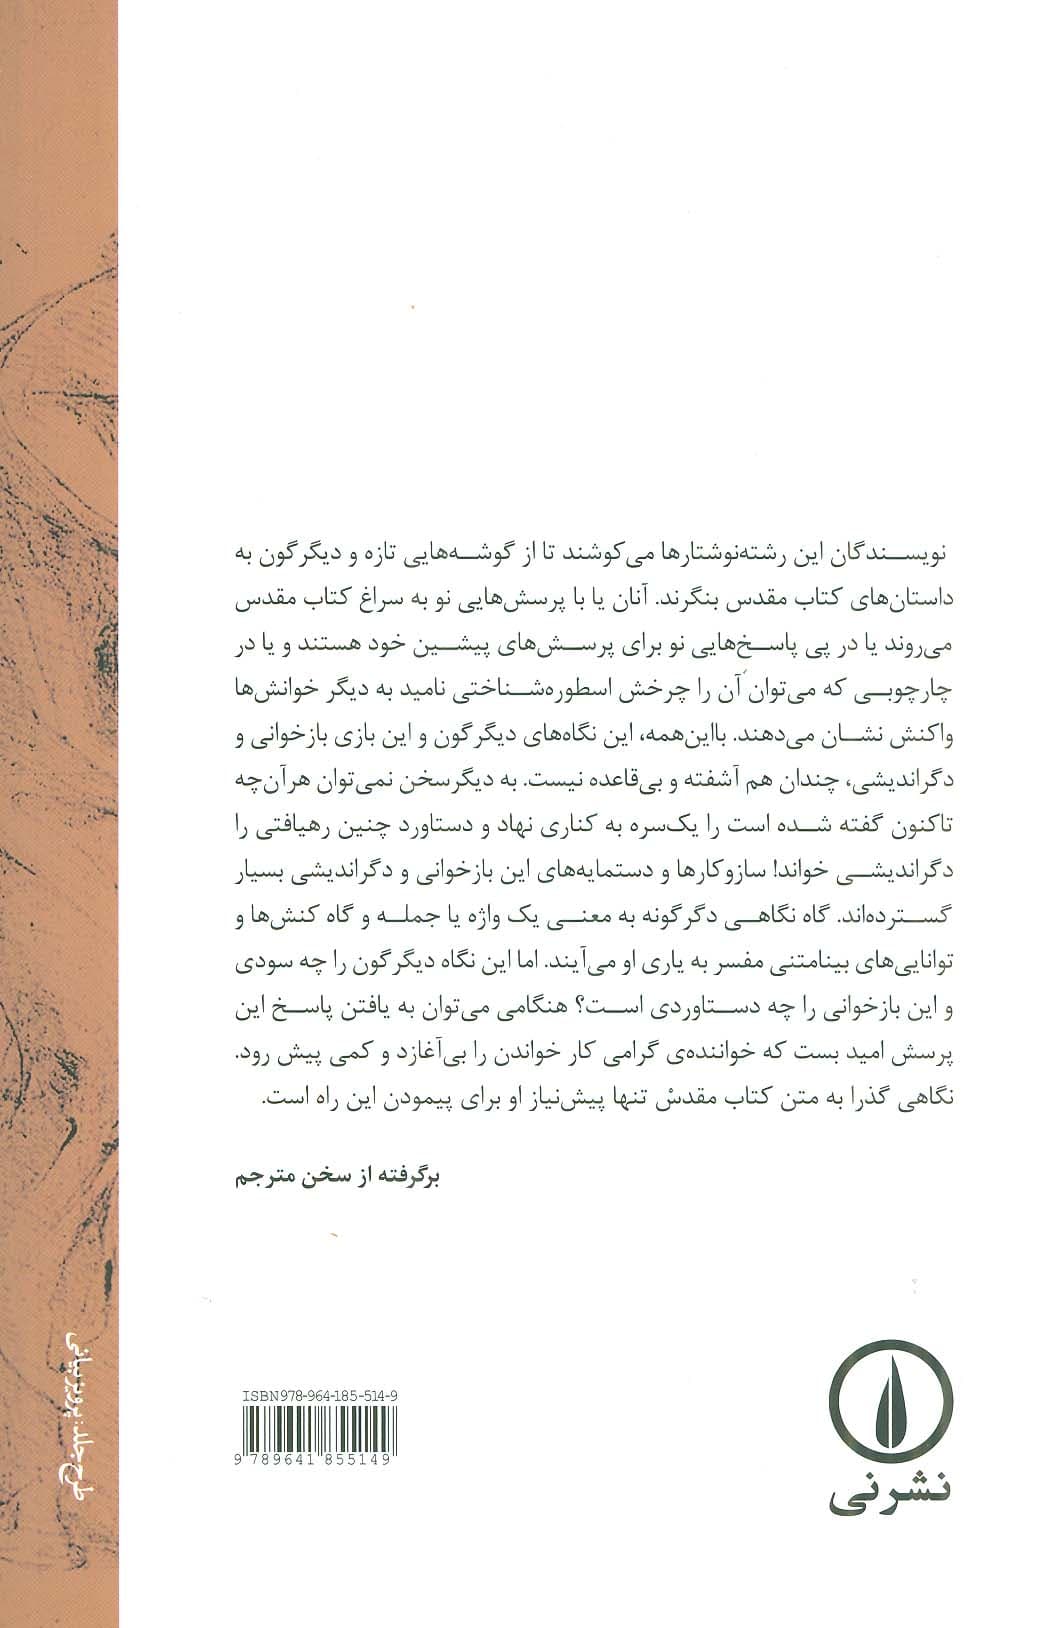 نویسندگان این رشته‌نوشتارها می‌کوشند تا از گوشه‌هایی تازه و دیگرگون به
داستان‌های کتاب مقدس بنگرند. آنان یا با پرسش‌هایی نو به سراغ کتاب مقدس
می‌روند یا در پی پاسخ‌هایی نو برای پرسش‌های پیشین خود هستند و یا در
چارچوبی که می‌توان آن را چرخش اسطوره‌شناختی نامید به دیگر خوانش‌ها
واکنش نشان می‌دهند. بااین‌همه، این نگاه‌های دیگرگون و این بازی بازخوانی و
دگراندیشی، چندان هم آشفته و بی‌قاعده نیست. به دیگرسخن نمی‌توان هرآن‌چه
تاکنون گفته شده است را یک‌سره به کناری نهاد و دستاورد چنین رهیافتی را
دگراندیشی خواند! سازوکارها و دستمایه‌های این بازخوانی و دگراندیشی بسیار
گسترده‌اند. گاه نگاهی دگرگونه به معنی یک واژه یا جمله و گاه کنش‌ها و
توانایی‌های بینامتنی مفسر به یاری او می‌آیند. اما این نگاه دیگرگون را چه سودی
و این بازخوانی را چه دستاوردی است؟ هنگامی می‌توان به یافتن پاسخ این
پرسش امید بست که خواننده‌ی گرامی کار خواندن را بی‌آغازد و کمی پیش رود.
نگاهی گذرا به متن کتاب مقدسْ تنها پیش‌نیاز او برای پیمودن این راه است.
برگرفته از سخن مترجم
ISBN978-964-185-514-9
9 789641 855149
نشرنی
طرح جلد: پرویز بیانی